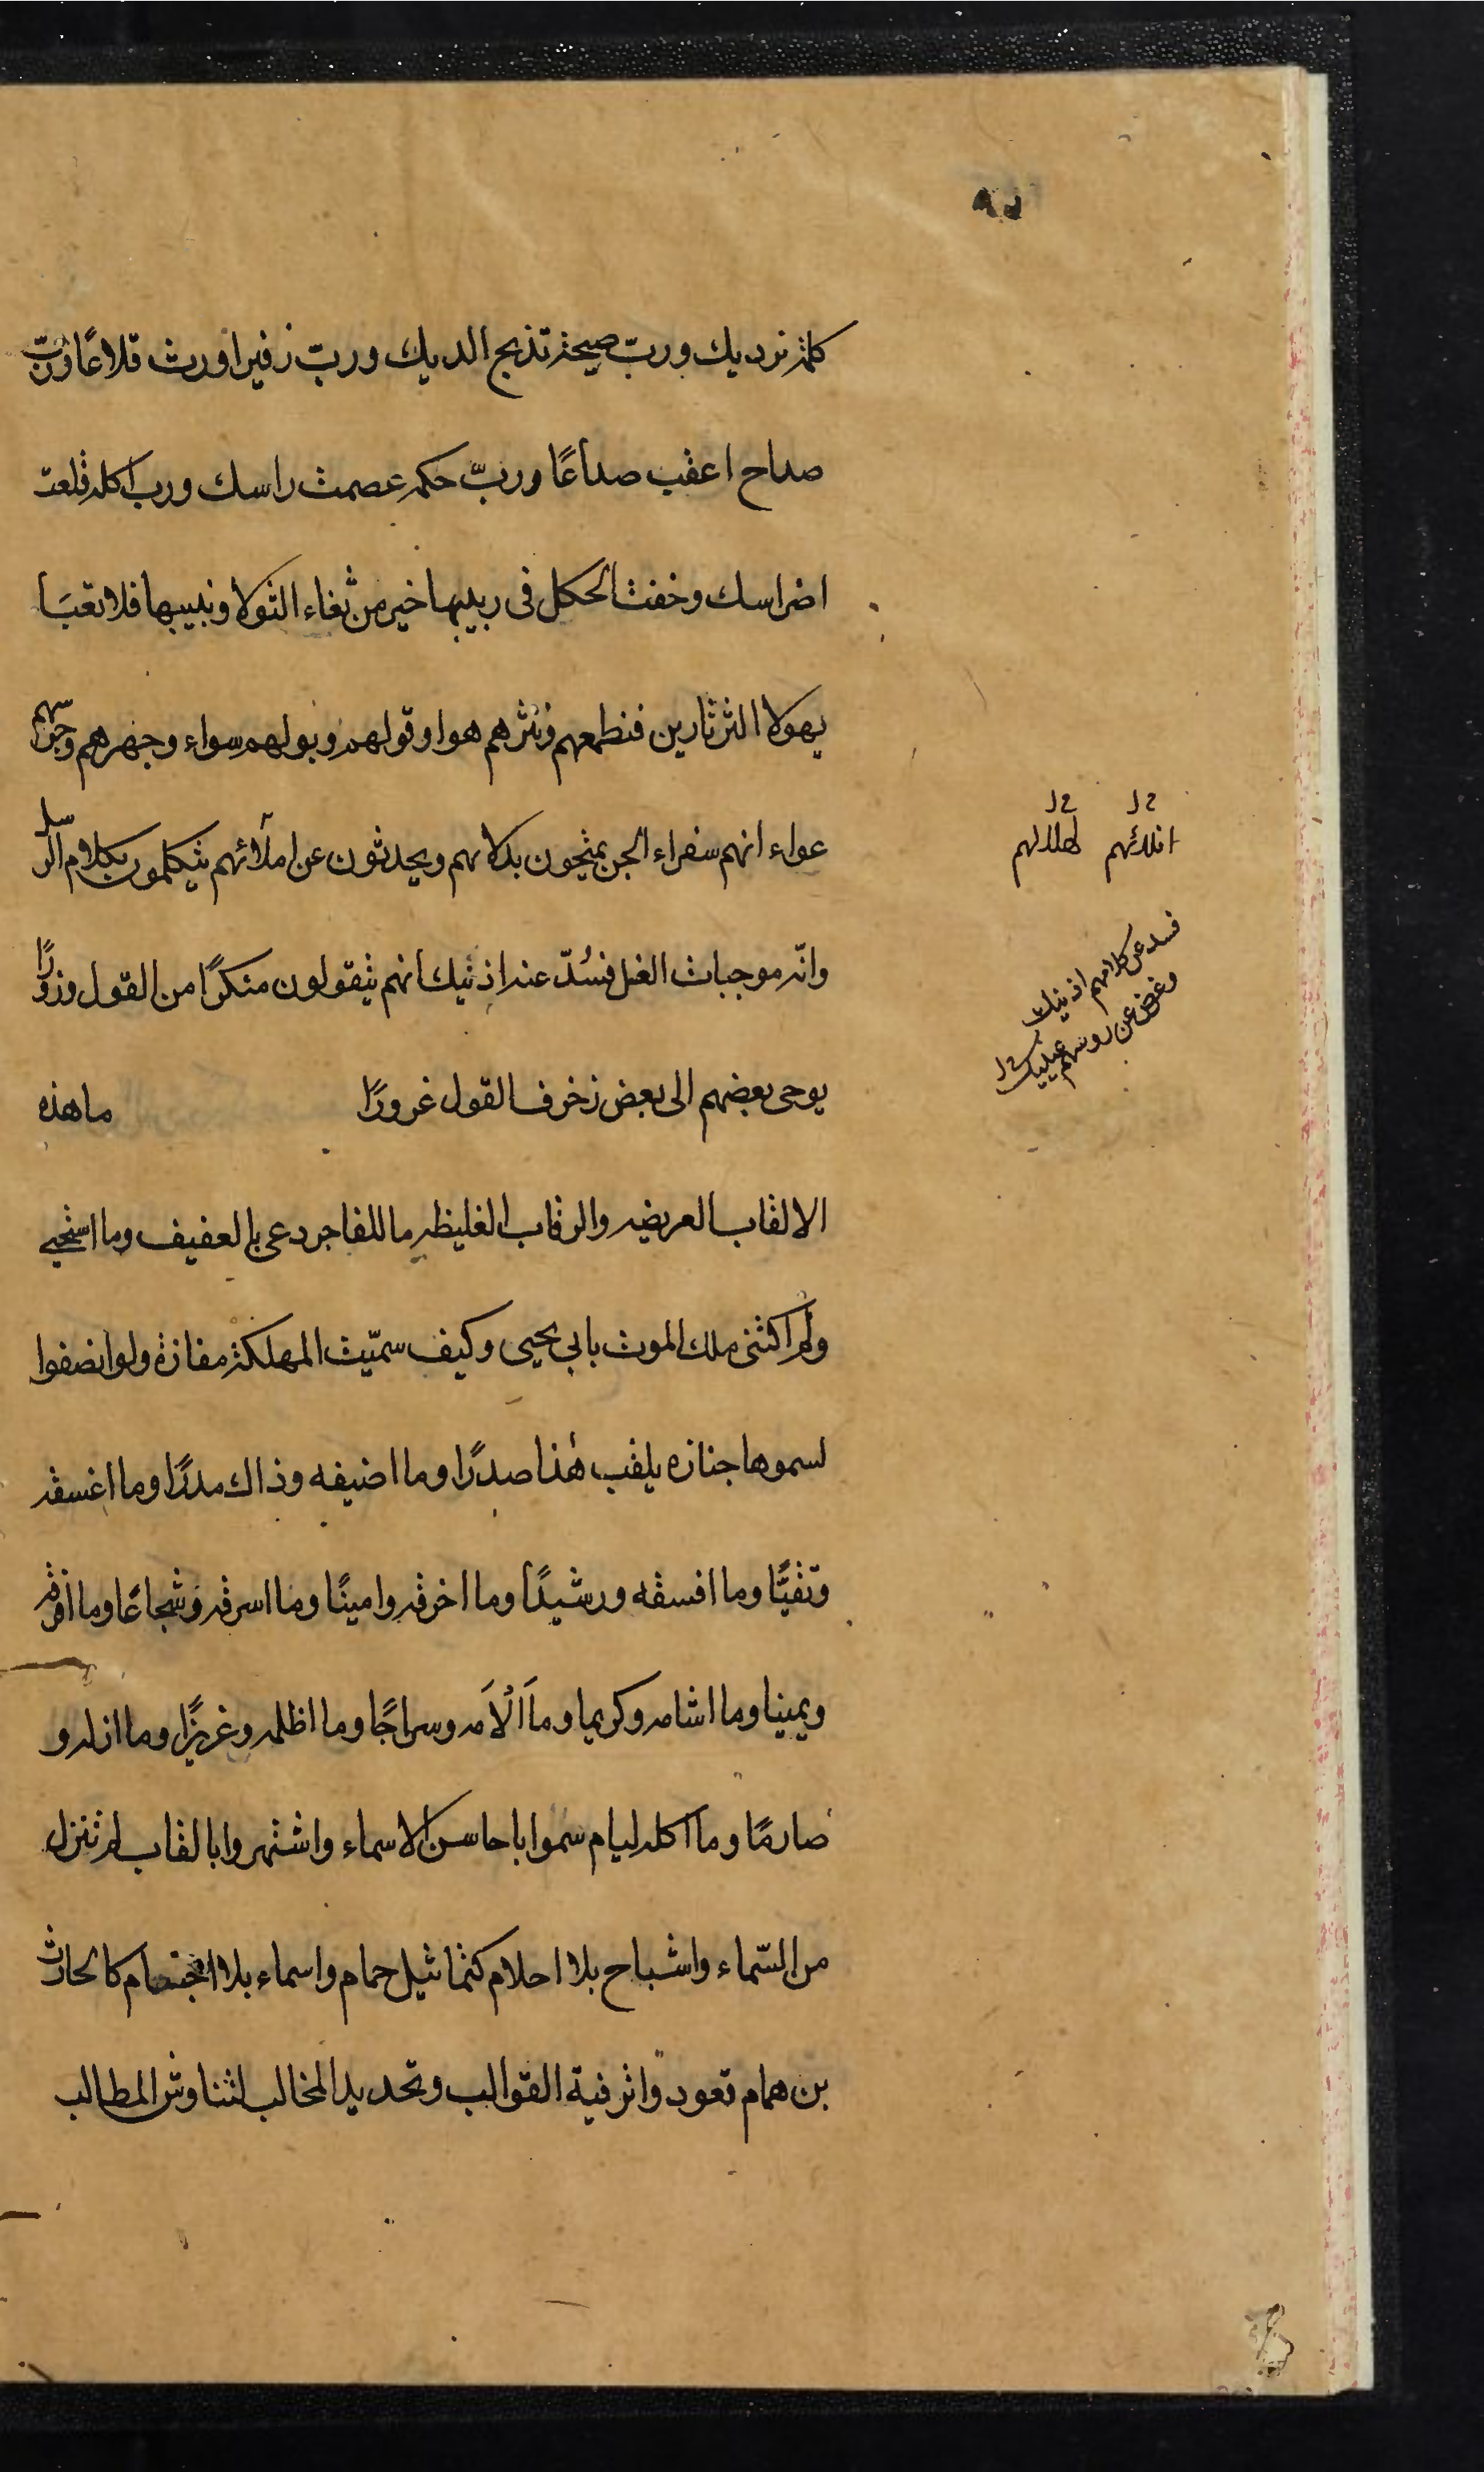 كلمة ترديك ورب صيحة تذبح الديك ورب زفير اورث قلاعًا ورب
صداح اعقب صداعًا وربّ حكمه عصمت راسك ورب اكله قلعت
اضراسك وخفت الحكل فى ربيبها خير من ثغاء الثولا ونبيبها فلا تعبَا
بهولا الثرثارين فنظمهم ونثرهم هوا وقولهم وبولهم سواء وجهرهم وجرسهم
عواء انهم سفراء الجن يمتحون بدلائهم ويحدثون عن املآئهم يتكلمون بكلام الرسل
وانّه موجبات الغسل فسُدّ عنه اذنيك انهم يتقولون منكرًا من القول وزورًا
يوحى بعضهم الى بعض زخرف القول غرورًا ما هذه
الالقاب العريضه والرقاب الغليظه ما للفاجر دعى بالعفيف وما استحيى
ولم اكتنى ملك الموت بابي يحيى وكيف سمّيت المهلكة مفازة ولو انصفوا
لسموها جنازه يلقب هٰذا صدرًا وما اضيفه وذاك بدرًا وما اغسقه
وتقيًّا وما افسقه ورشيدًا وما اخرقه وامينًا وما اسرقه وشجاعًا وما افرقه
ويمينا وما اشامه وكريما وما اَلْاَمه وسراجًا وما اظلمه وعزيزًا وما اذله و
صارمًا وما اكله ليام سموا باحاسن الاسماء واشتهروا بالقاب لم تنزل
من السّماء واشباح بلا احلام كتماثيل حمام واسماء بلا اجسام كالحارث
بن همام تعودوا ترفية القوالب وتحديد المخالب لتناوش المطالب
فسد عن كلامهم اذنيك
وغض عن روسهم عينيك